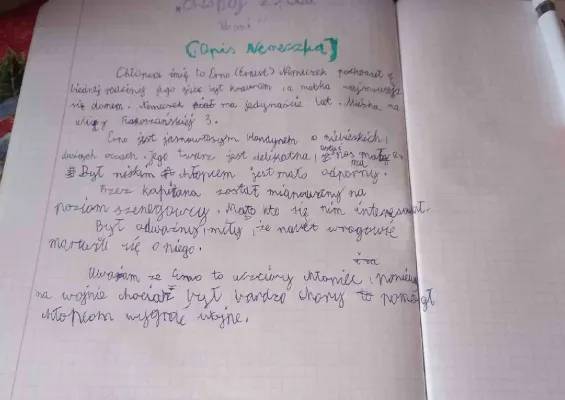 [Opis Nemeczka]
Chłopiec imię to Erno (Ernest) Nemeczek pochodził z
biednej rodziny jego ojciec był krawcem, a matka zajmowała
się domem. Nemeczek ma jedynaście lat. Mieszka na
ulicy Rakoszańskiej 3.
Erno jest jasnowłosym blondynem o niebieskich,
dużych oczach. Jego twarz jest delikatna, nos ma
Był niskim chłopcem jest mało odporny.
Przez kapitana został mianowany na
poziom szeregowcy. Mało kto się nim interesował.
Był odważny, miły, że nawet wrogowie
martwili się o niego.
Uważam że Erno to uczciwy chłopiec,
na wojnie chociaż był bardzo chory pomógł
chłopcom wygrać wojnę.